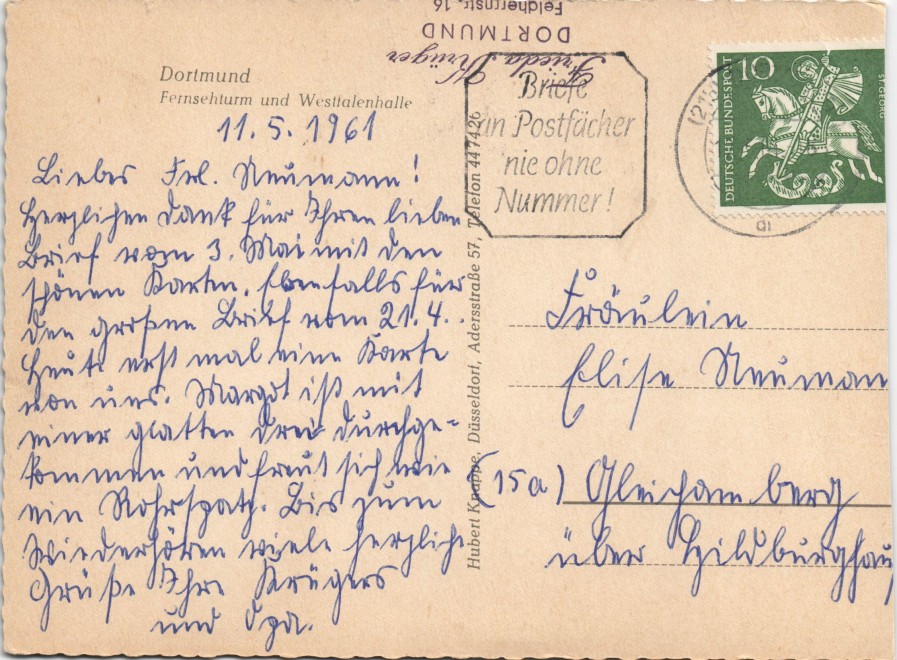 Frieda Krüger
DORTMUND
Feldherrnstr. 16
Dortmund
Fernsehturm und Westfalenhalle
11.5.1961
Liebes Frl. Neumann!
Herzlichen Dank für Ihren lieben
Brief vom 3. Mai mit den
schönen Karten. Ebenfalls für
den großen Brief vom 21.4..
Heute erst mal eine Karte
von uns. Margot ist mit
einer glatten drei durchge-
kommen und freut sich wie
ein Rohrspatz. Bis zum
Wiederhören viele herzliche
Grüße Ihre Krügers
und Opa.
Hubert Knappe, Düsseldorf, Adersstraße 57, Telefon 447426
Briefe
an Postfächer
nie ohne
Nummer!
(21b)
ai
10
DEUTSCHE BUNDESPOST
ST. GEORG
Fräulein
Elise Neuman
(15a) Gleichamberg
über Hildburghau